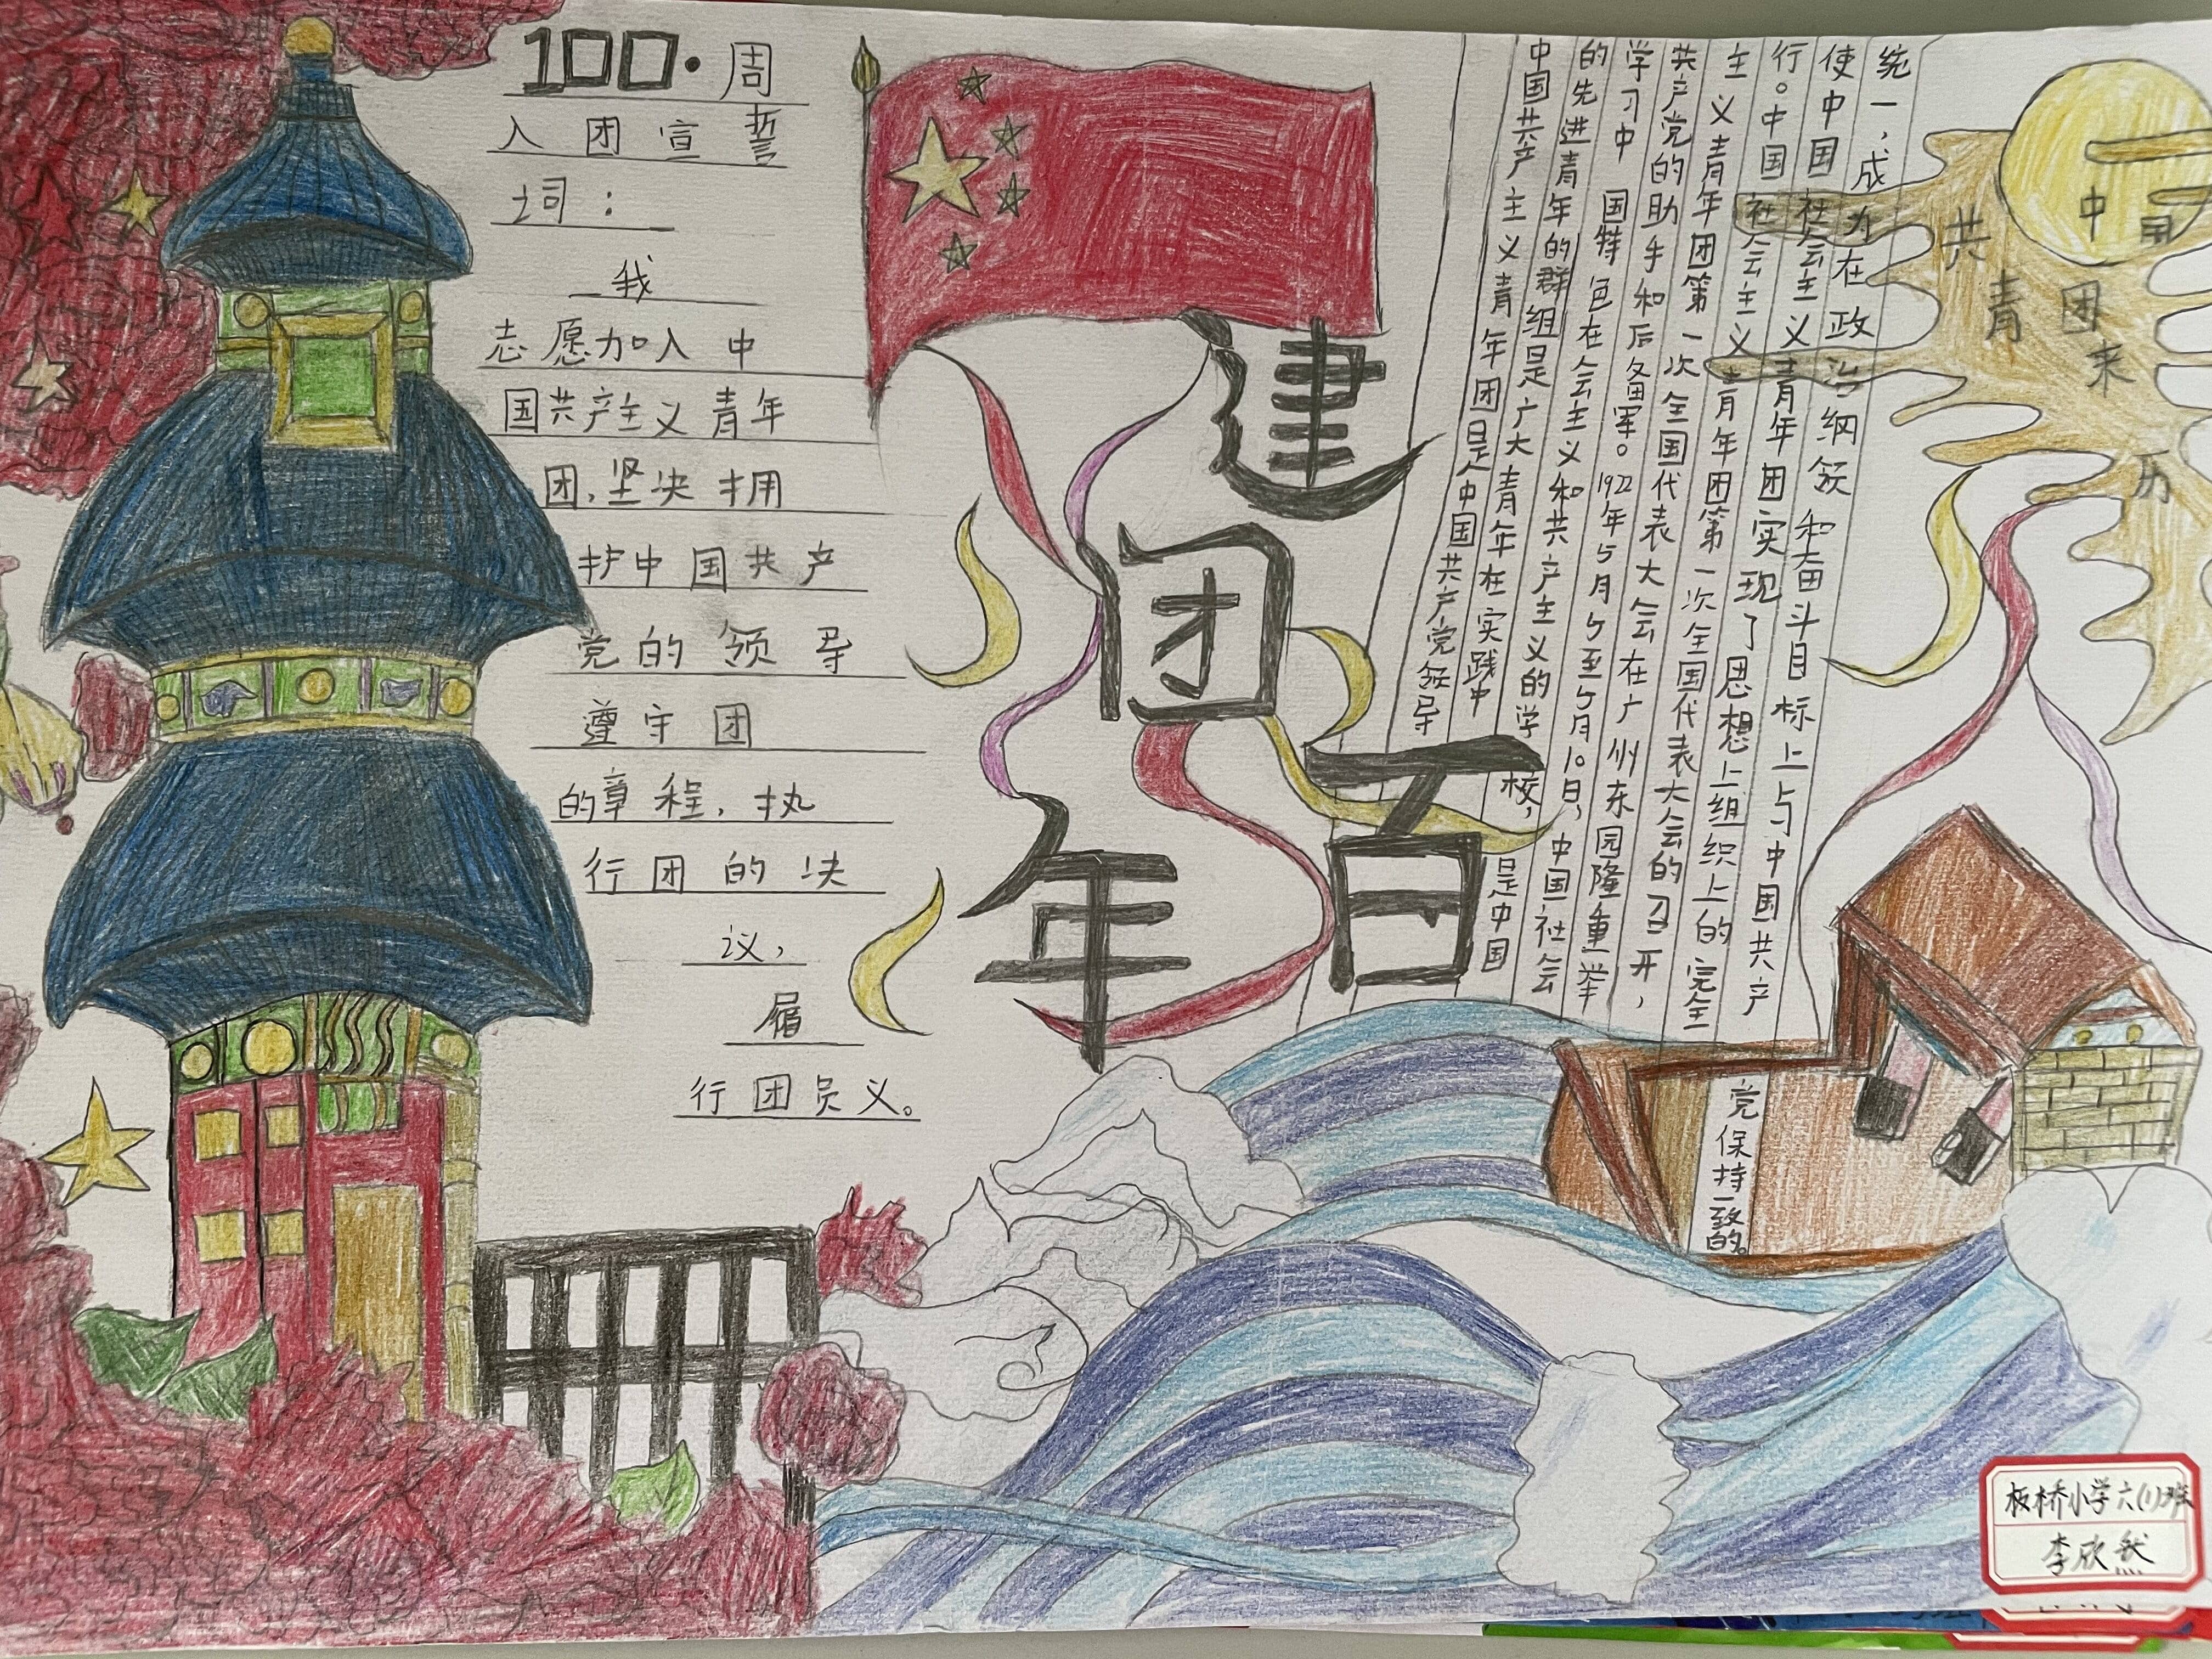 100·周
入团宣誓
词：
我
志愿加入中
国共产主义青年
团,坚决拥
护中国共产
党的领导
遵守团
的章程,执
行团的决
议,
履
行团员义。
建
团
百
年
中国
共青团来历
中国共产主义青年团是人中国共产党领导
的先进青年的群组是广大青年在实践中
学习中国特色在会主义和共产主义的学校,是中国
共产党的助手和后备军。1922年5月5至5月10日,中国社会
主义青年团第一次全国代表大会在广州东园隆重举
行。中国社会主义青年团第一次全国代表大会的召开,
使中国社会主义青年团实现了思想上组织上的完全
统一,成为在政治纲领和奋斗目标上与中国共产
党保持一致的。
板桥小学六(1)班
李欣然